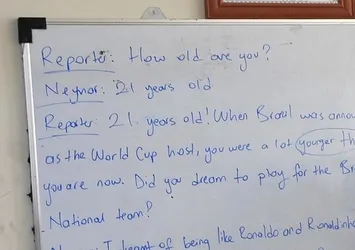 Reporter: How old are you?
Neymar: 21 years old
Reporter: 21 years old! When Brazil was annou
as the World Cup host, you were a lot younger th
you are now. Did you dream to play for the Br
National team?
of being like Ronaldo and Ronaldinh